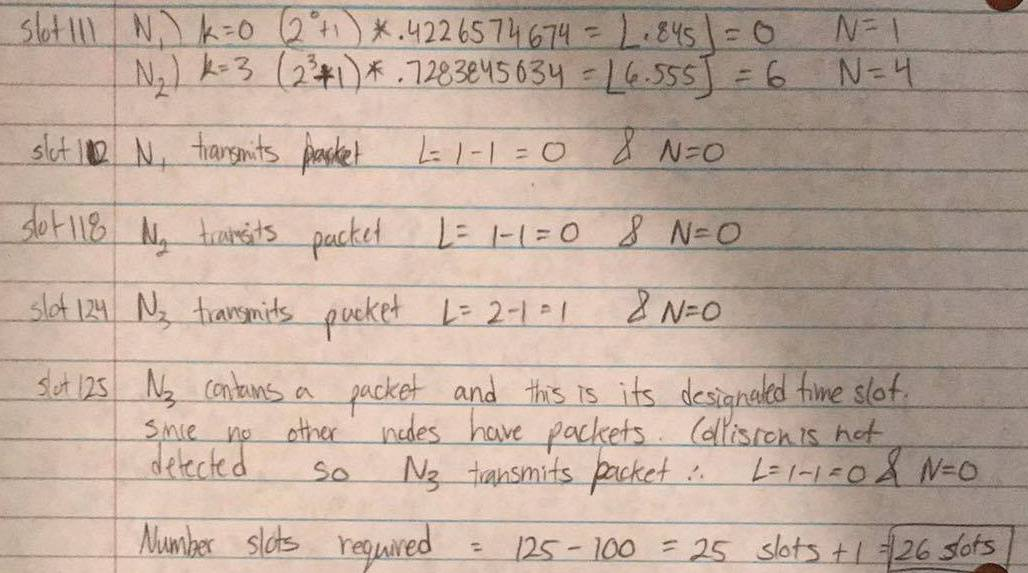 slot 111 N₁) k=0 (2⁰+1) * .4226574674 = ⌊.845⌋ = 0 N=1
N₂) k=3 (2³+1) * .7283845634 = ⌊6.555⌋ = 6 N=4
slot 112 N₁ transmits packet L= 1-1 = 0 & N=0
slot 118 N₂ transits packet L= 1-1=0 & N=0
slot 124 N₃ transmits packet L= 2-1=1 & N=0
slot 125 N₃ contains a packet and this is its designated time slot.
Since no other nodes have packets. Collision is not
detected so N₃ transmits packet ∴ L=1-1=0 & N=0
Number slots required = 125-100 = 25 slots +1 = 26 slots